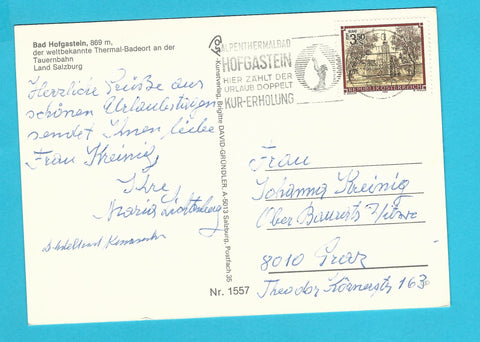 Bad Hofgastein, 869 m,
der weltbekannte Thermal-Badeort an der
Tauernbahn
Land Salzburg
Herzliche Grüße aus
schönen Urlaubstagen
sendet Ihnen, liebe
Frau Kreinig,
Ihre
Maria
Kunstverlag, Brigitte DAVID-GRÜNDLER, A-5013 Salzburg, Postfach 35
Nr. 1557
ALPENTHERMALBAD
HOFGASTEIN
HIER ZÄHLT DER
URLAUB DOPPELT
KUR-ERHOLUNG
S 3.50
REPUBLIK ÖSTERREICH
Frau
Johanna Kreinig
Ober Baurats Witwe
8010 Graz
Theodor Körnerstr 163